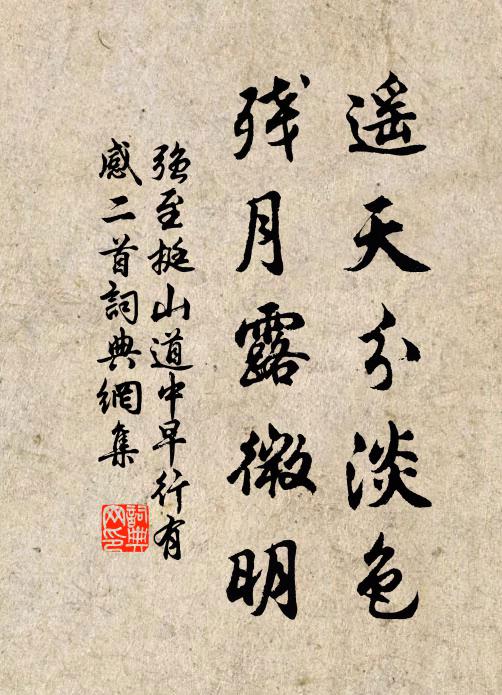 遥天分淡色
残月露微明
强至挺山道中早行有
感二首詞典網集
詞典
网印